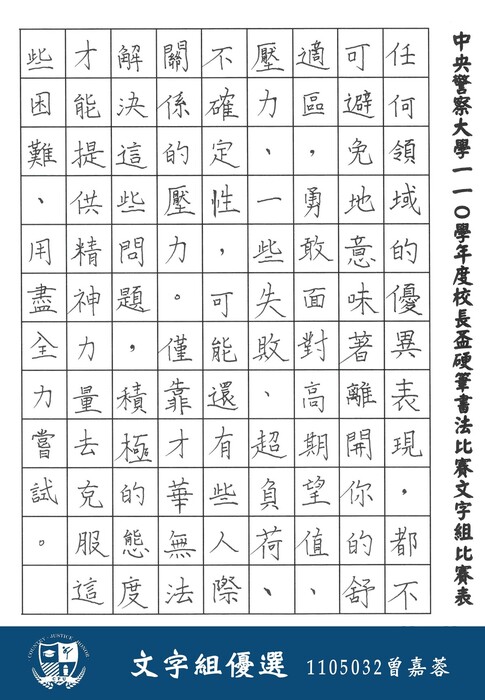 中央警察大學一一〇學年度校長盃硬筆書法比賽文字組比賽表
任何領域的優異表現，都不
可避免地意味著離開你的舒
適區，勇敢面對高期望值、
壓力、一些失敗、超負荷、
不確定性，可能還有些人際
關係的壓力。僅靠才華無法
解決這些問題，積極的態度
才能提供精神力量去克服這
些困難、用盡全力嘗試。
文字組優選 1105032曾嘉蓉